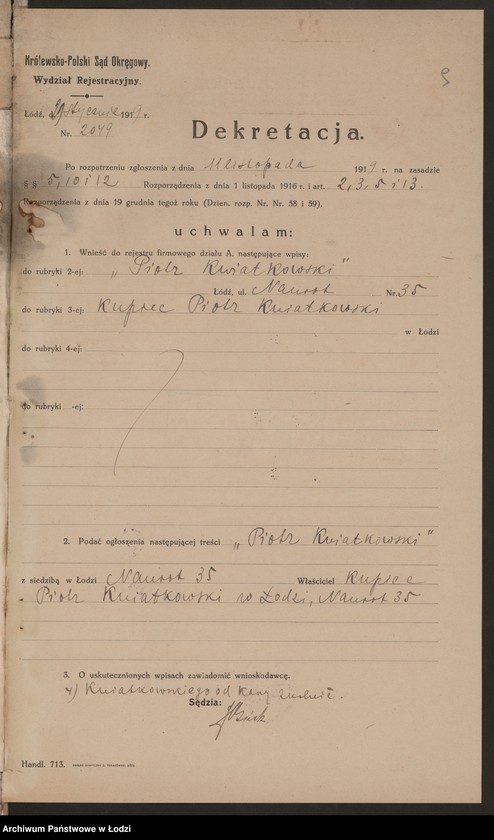 Królewsko-Polski Sąd Okręgowy.
Wydział Rejestracyjny.
Łódź, d. stycznia 1919 r.
Nr. 2049
Dekretacja.
Po rozpatrzeniu zgłoszenia z dnia listopada 1919 r. na zasadzie
§ § 5, 10 i 12 Rozporządzenia z dnia 1 listopada 1916 r. i art. 2, 3, 5 i 13.
Rozporządzenia z dnia 19 grudnia tegoż roku (Dzien. rozp. Nr. Nr. 58 i 59),
uchwalam:
1. Wnieść do rejestru firmowego działu A. następujące wpisy:
do rubryki 2-ej: „Piotr Kwiatkowski"
Łódź, ul. Nawrot Nr. 35
do rubryki 3-ej: Kupiec Piotr Kwiatkowski
w Łodzi
do rubryki 4-ej:
do rubryki -ej:
2. Podać ogłoszenia następującej treści „Piotr Kwiatkowski"
z siedzibą w Łodzi Nawrot 35 Właściciel Kupiec
Piotr Kwiatkowski w Łodzi, Nawrot 35
3. O uskutecznionych wpisach zawiadomić wnioskodawcę.
4) Kwiatkowskiego od kary zwolnić.
Sędzia:
Handl. 713.
Archiwum Państwowe w Łodzi